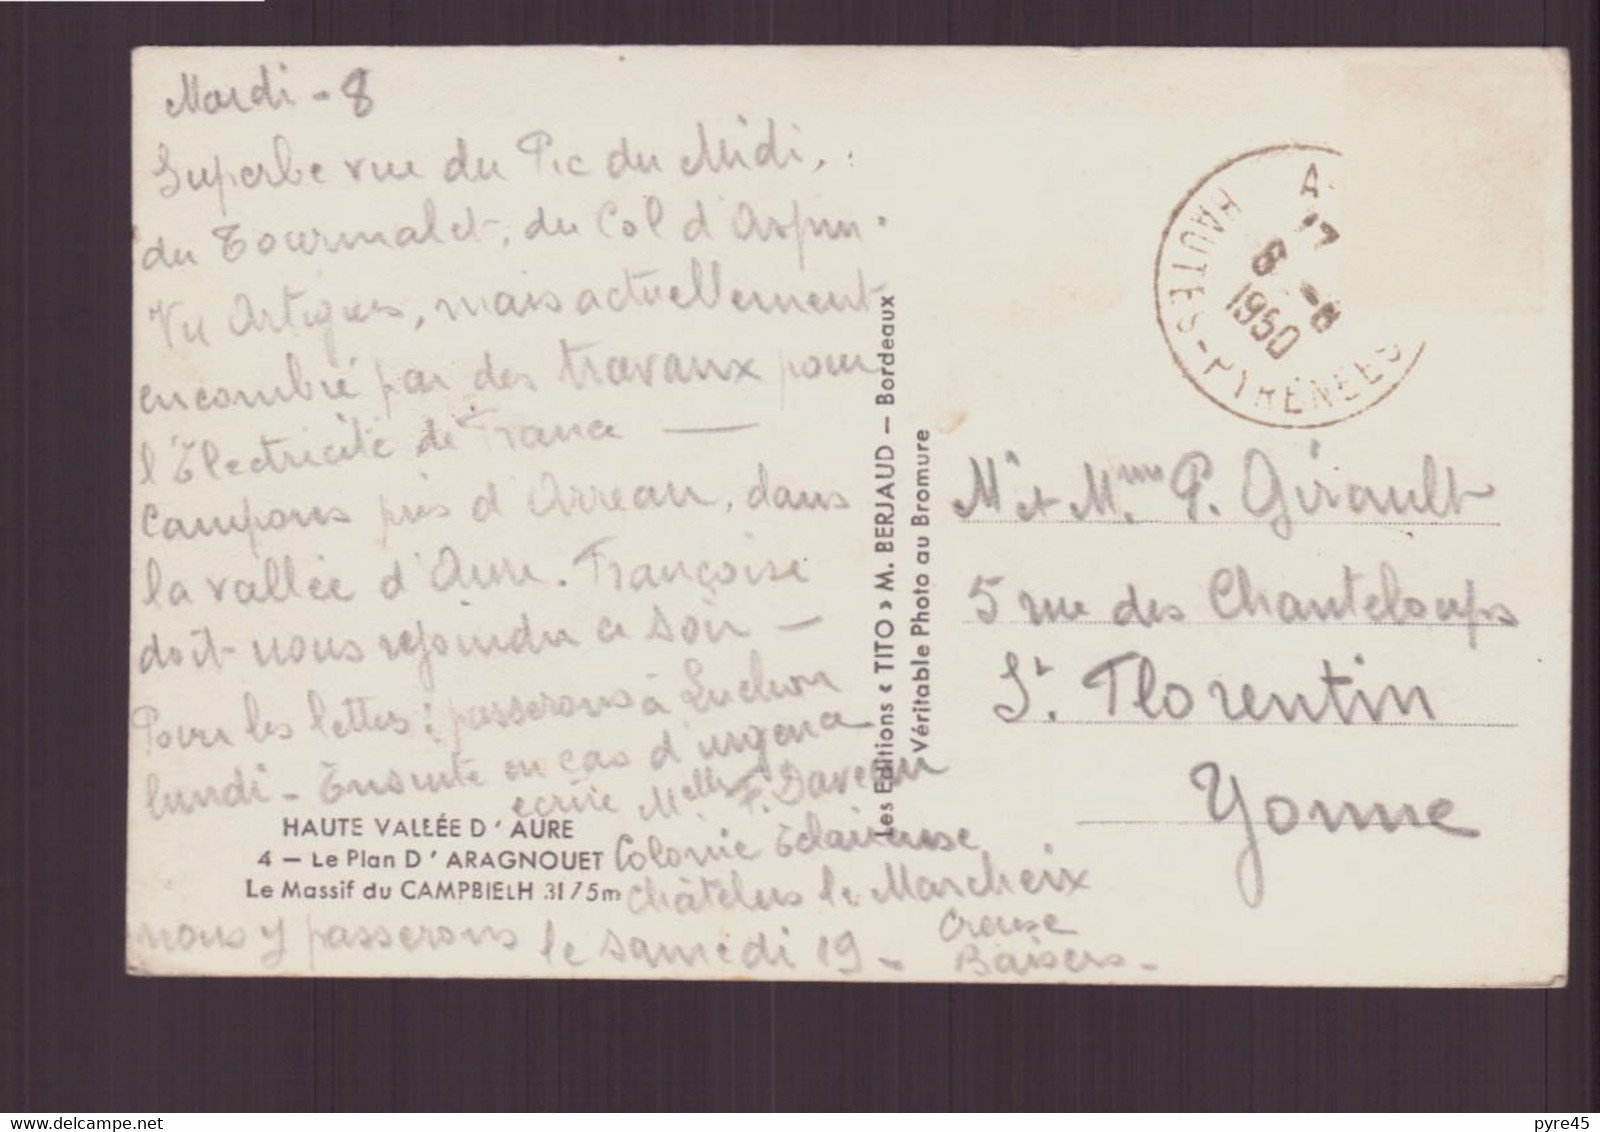 Mardi - 8
Superbe vue du Pic du Midi,
du Tourmalet, du Col d'Aspin.
Vu Artigues, mais actuellement
encombré par des travaux pour
l'Electricité de France —
Campons près d'Arreau, dans
la vallée d'Aure. Françoise
doit nous rejoindre ce soir —
Pour les lettres : passerons à Luchon
lundi - Ensuite en cas d'urgence
écrire Melle F.
Colonie Eclaireuse
Châtelus le Marcheix
Creuse
nous y passerons le samedi 19 -
Baisers -
HAUTE VALLÉE D'AURE
4 — Le Plan D'ARAGNOUET
Le Massif du CAMPBIELH 3175m
Les Editions « TITO » M. BERJAUD — Bordeaux
Véritable Photo au Bromure
A
17
8 -8
1950
HAUTES-PYRENEES
Mr et Mme P. Girault
5 rue des Chanteloups
St Florentin
Yonne
delcampe.net
pyre45